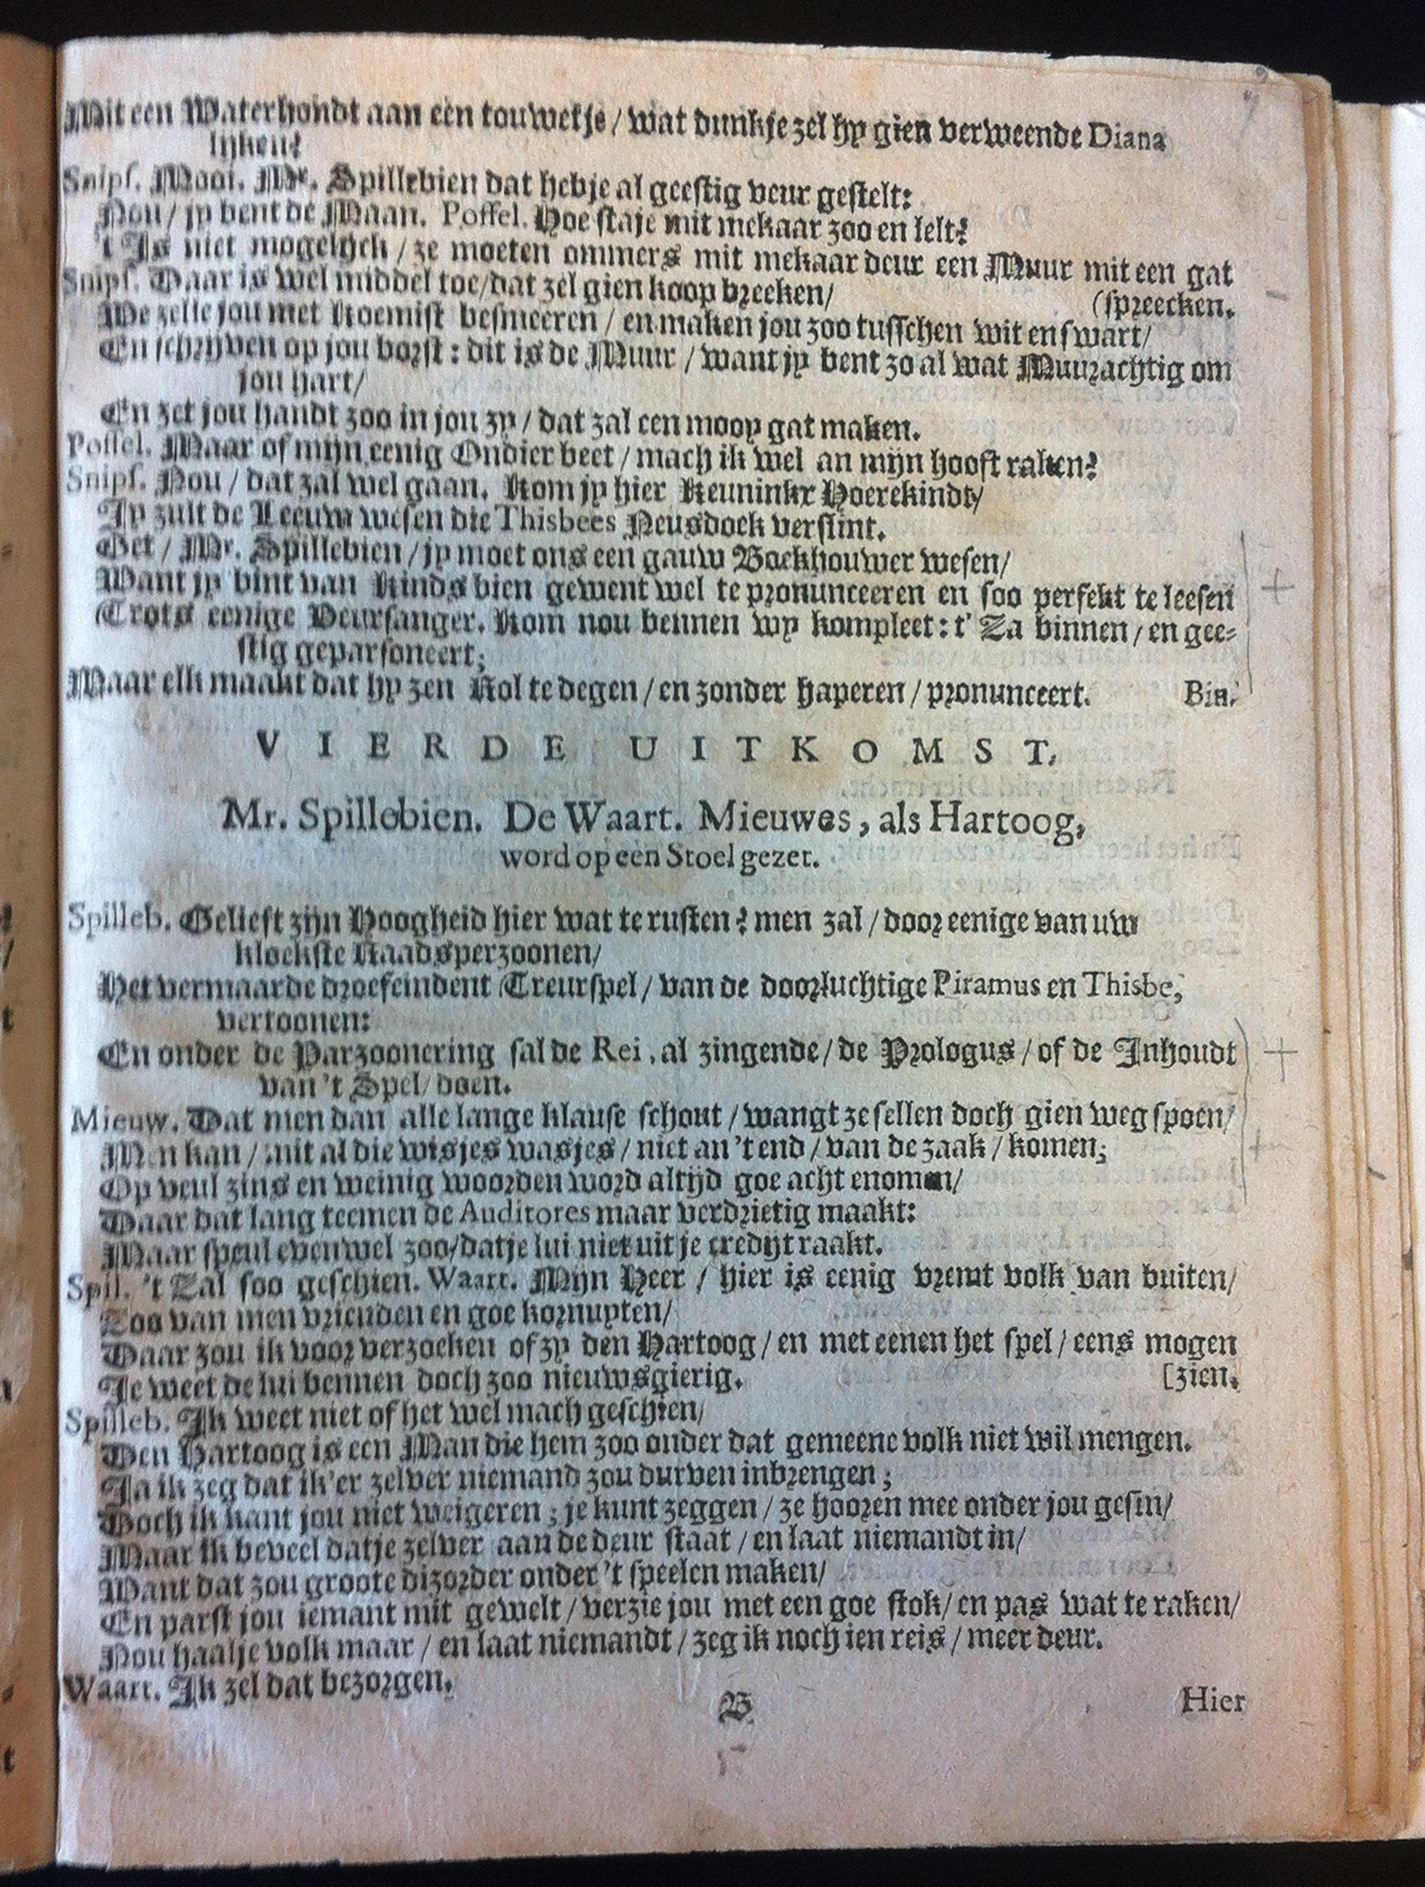 Mit een Waterhondt aan een touwetje / wat dunkje zel hy gien verweende Diana
lijken?
Snips. Mooi. Mr. Spillebien dat hebje al geestig veur gestelt:
Nou / jy bent de Maan. Poffel. Hoe staje mit mekaar zoo en lelt?
't Is niet mogelijck / ze moeten ommers mit mekaar deur een Muur mit een gat
Snips. Daar is wel middel toe / dat zel gien koop breeken / (spreecken.
We zelle jou met koemist besmeeren / en maken jou zoo tusschen wit en swart /
En schrijven op jou borst: dit is de Muur / want jy bent zo al wat Muurachtig om
jou hart /
En zet jou handt zoo in jou zy / dat zal een mooy gat maken.
Poffel. Maar of mijn eenig Ondier beet / mach ik wel an mijn hooft raken?
Snips. Nou / dat zal wel gaan. Kom jy hier Keuninkx Hoerekindt /
Jy zult de Leeuw wesen die Thisbees Neusdoek verslint.
Get / Mr. Spillebien / jy moet ons een gauw Boekhouwer wesen /
Want jy bint van kinds bien gewent wel te pronunceeren en soo perfekt te leesen
Trots eenige Veursanger. Kom nou bennen wy kompleet: t' Za binnen / en gee-
stig geparsoneert;
Maar elk maakt dat hy zen Rol te degen / en zonder haperen / pronunceert. Bin.
VIERDE UITKOMST.
Mr. Spillebien. De Waart. Mieuwes, als Hartoog,
word op een Stoel gezet.
Spilleb. Gelieft zijn Hoogheid hier wat te rusten? men zal / door eenige van uw
kloekste Raadsperzoonen /
Het vermaarde droefeindent Treurspel / van de doorluchtige Piramus en Thisbe,
vertoonen:
En onder de Parzoonering sal de Rei, al zingende / de Prologus / of de Inhoudt
van 't Spel / doen.
Mieuw. Dat men dan alle lange klause schout / wangt ze sellen doch gien weg spoen /
Men kan / mit al die wisjes wasjes / niet an 't end / van de zaak / komen;
Op veul zins en weinig woorden word altijd goe acht enomen /
Daar dat lang teemen de Auditores maar verdrietig maakt:
Maar speul evenwel zoo / datje lui niet uit je credijt raakt.
Spil. 't Zal soo geschien. Waart. Mijn Heer / hier is eenig vremt volk van buiten /
Zoo van men vrienden en goe kornuyten /
Daar zou ik voor verzoeken of zy den Hartoog / en met eenen het spel / eens mogen
Je weet de lui bennen doch zoo nieuwsgierig. [zien.
Spilleb. Ik weet niet of het wel mach geschien /
Den Hartoog is een Man die hem zoo onder dat gemeene volk niet wil mengen.
Ja ik zeg dat ik 'er zelver niemand zou durven inbrengen;
Doch ik kant jou niet weigeren; je kunt zeggen / ze hooren mee onder jou gesin /
Maar ik beveel datje zelver aan de deur staat / en laat niemandt in /
Want dat zou groote dizorder onder 't speelen maken /
En parst jou iemant mit gewelt / verzie jou met een goe stok / en pas wat te raken /
Nou haalje volk maar / en laat niemandt / zeg ik noch ien reis / meer deur.
Waart. Ik zel dat bezorgen.
B Hier